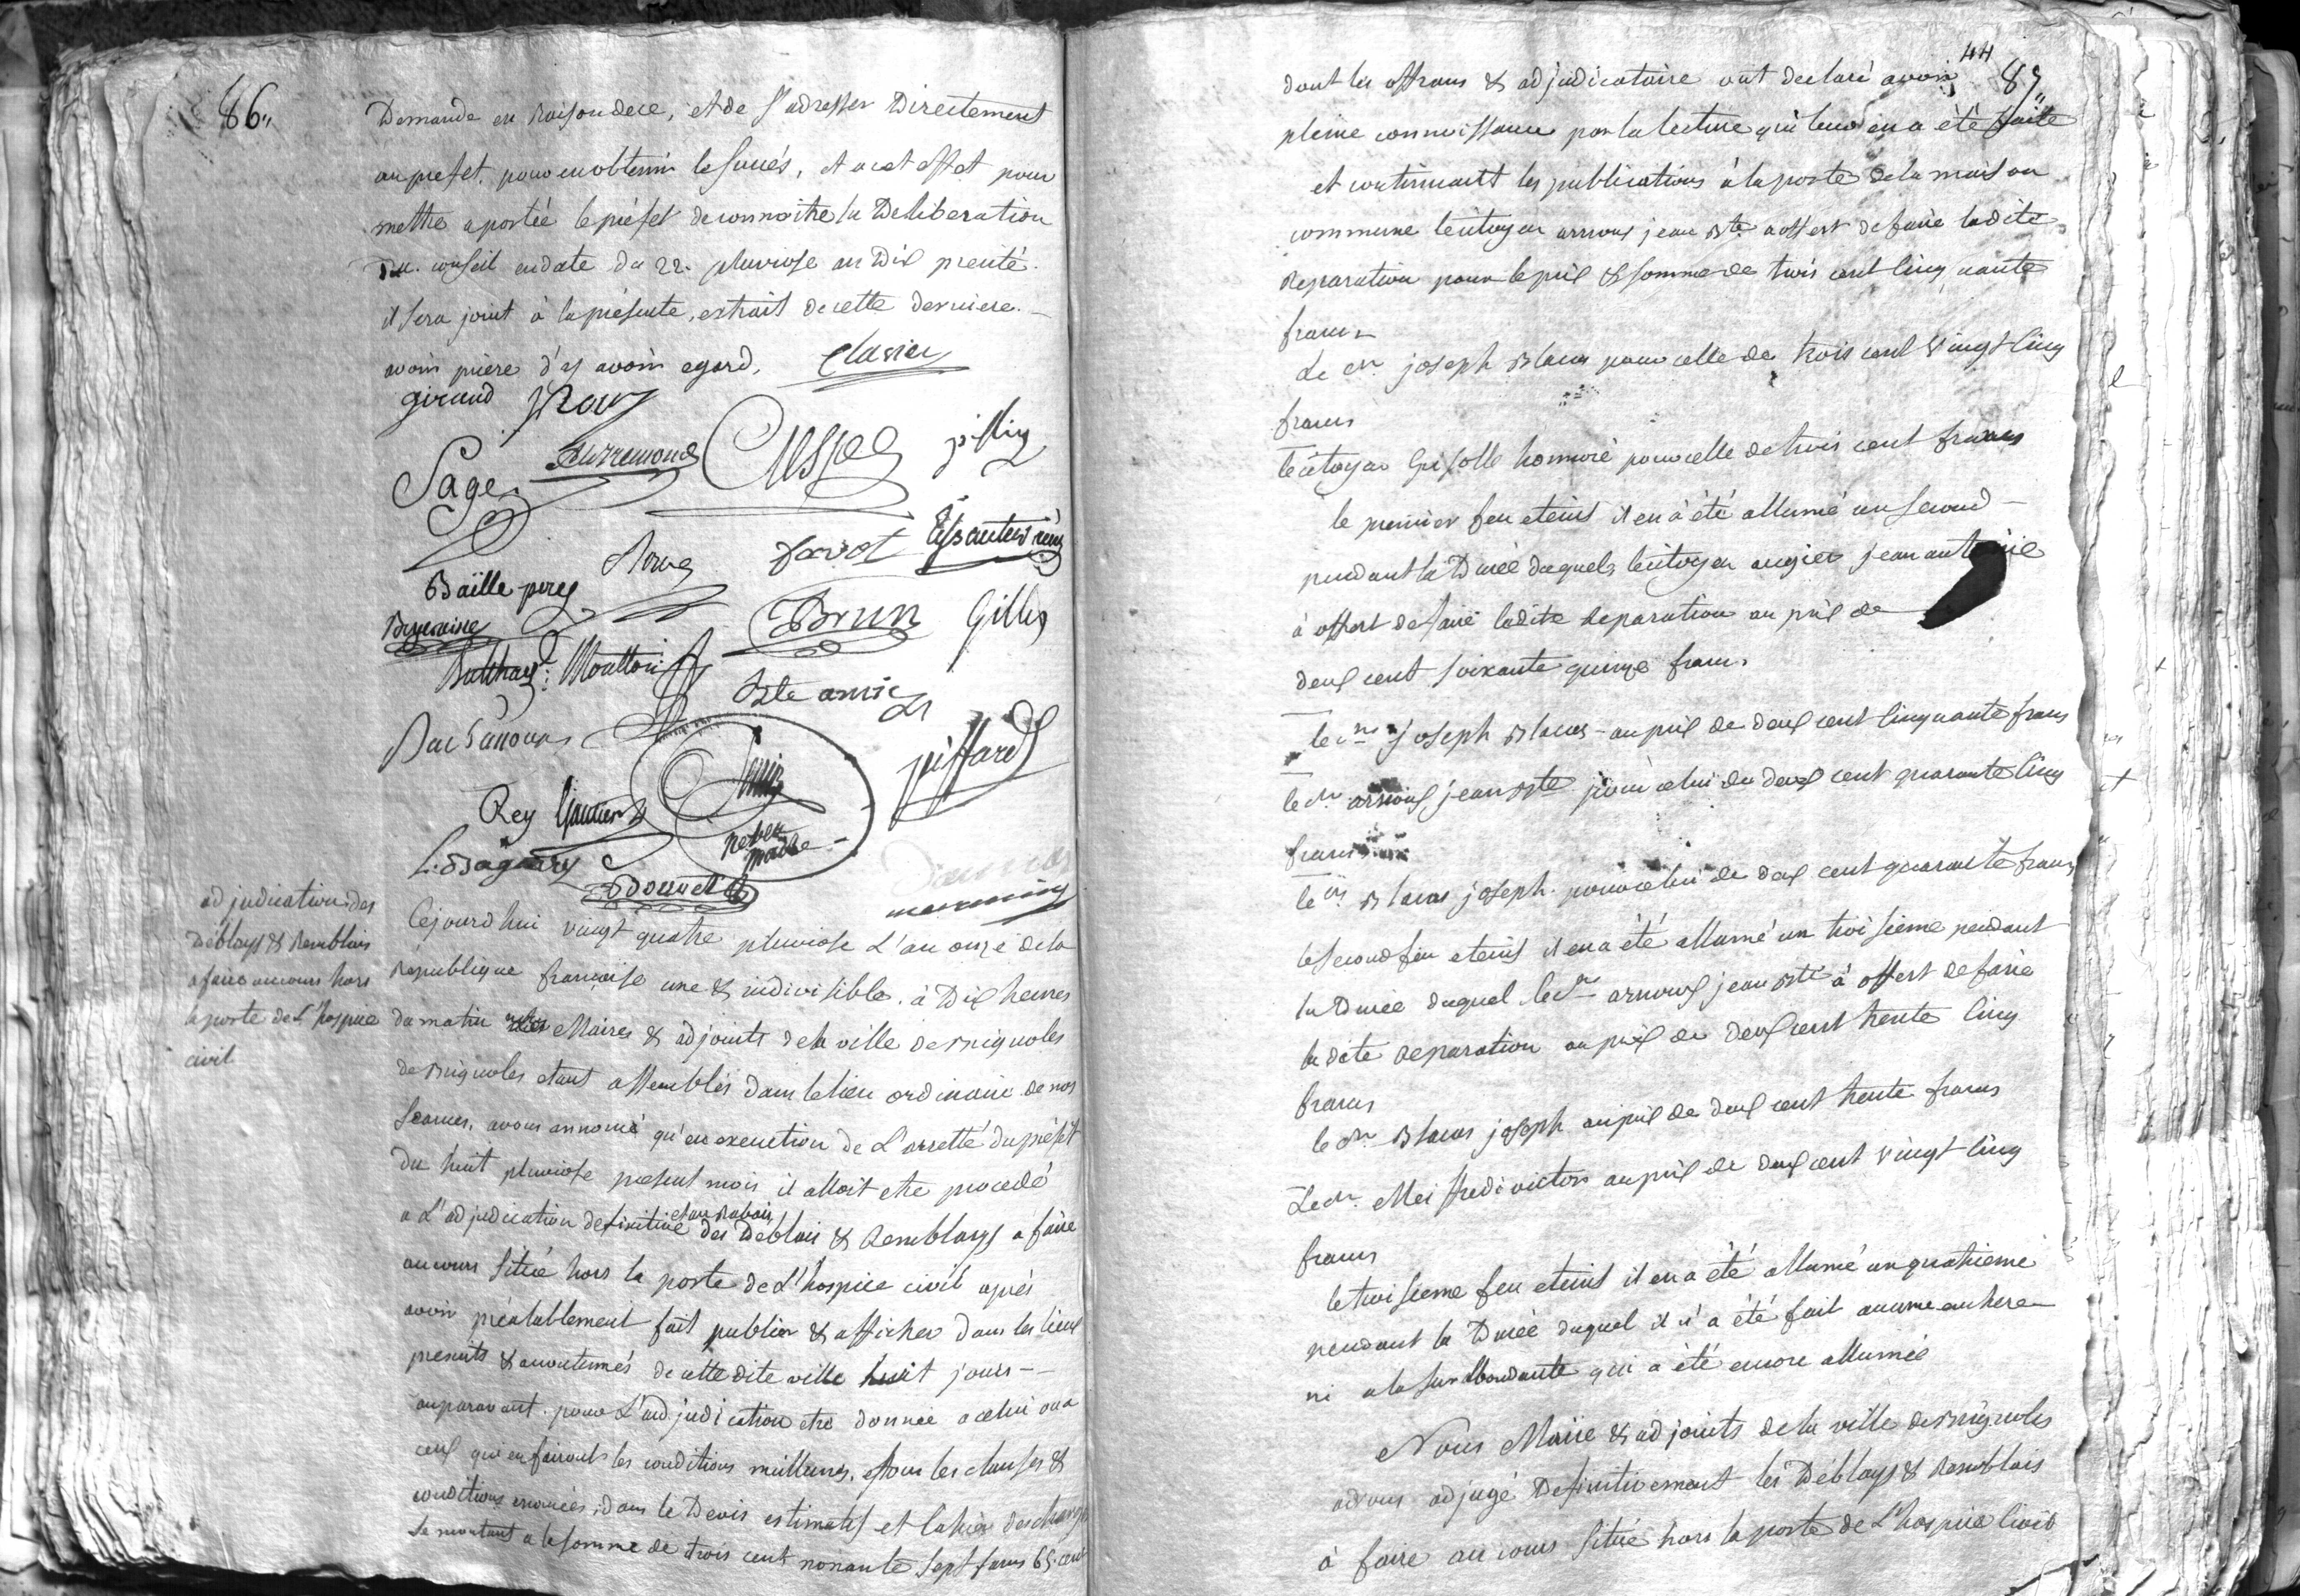 86"
Demande en Raison de ce, et de s'adresser Directement
au prefet, pour en obtenir le succés, et a cet effet pour
mettre a portée le préfet de connoitre la Deliberation
Du conseil en date du 22. pluviose an Dix precité
il sera joint à la présente, extrait de cette derniere. –
avoir priere d'y avoir egard,
giraud
Sage
jh
Favot
Baille pere
Brun Gilles
Bte amic
piffard
Rey Gautier
Bonnet
adjudication des
Déblays & Remblais
a faire au cours hors
la porte de L'hospice
civil
Cejourd'hui vingt quatre pluviose L'an onze de la
République française une & indivisible. à Dix heures
du matin Maires & adjoints de la ville de Brignoles
de Brignoles etant assemblés dans le lieu ordinaire de nos
Seances, avons annoncé qu'en execution de L'arretté du préfet
du huit pluviose present mois il alloit etre procedé
et au Rabais
a L'adjudication definitive des Deblais & Remblays a faire
au cours situé hors la porte de L'hospice civil après
avoir préalablement fait publier & afficher dans les lieux
& accoutumés de cette dite ville huit jours –
auparavant pour L'adjudication etre donnée a celui ou a
ceux qui en fairont les conditions meilleures, et sous les clauses &
conditions enoncées dans le Devis estimatif et Cahier des charges
se montant a la somme de trois cent nonante sept francs 65. cent
44
87"
dont les offrans & adjudicataire ont declaré avoir
pleine connoissance par la lecture qui leur en a été faite
et continuant les publications à la porte de la maison
commune le citoyen arnoux jean Bte a offert de faire ladite
Reparation pour le prix & somme de trois cent cinquante
francs
Le cn joseph Blacas pour celle de trois cent vingt cinq
francs
le citoyen honnoré pour celle de trois cent francs
le premier feu eteint il en a été allumé un second –
pendant la Durée duquel le citoyen augier jean antoine
à offert de faire ladite Reparation au prix de
deux cent soixante quinze francs
le cn Joseph Blacas – au prix de deux cent cinquante francs
le cn arnoux jean Bte pour celui de deux cent quarante cinq
francs
le cn Blacas joseph pour celui de deux cent quarante francs
le second feu eteint il en a été allumé un troisieme pendant
la Durée duquel le cn arnoux jean Bte à offert de faire
la dite Reparation au prix de deux cent trente cinq
francs
le cn Blacas joseph au prix de deux cent trente francs
Le cn Meiffredi victor au prix de deux cent vingt cinq
francs
le troisieme feu eteint il en a été allumé un quatrieme
pendant la Durée duquel il n'a été fait aucune enchere
ni a la surabondante qui a été encore allumée
Nous Maire & adjoints de la ville de Brignoles
avons adjugé Definitivement les Déblays & Remblais
à faire au cours situé hors la porte de L'hospice Civil